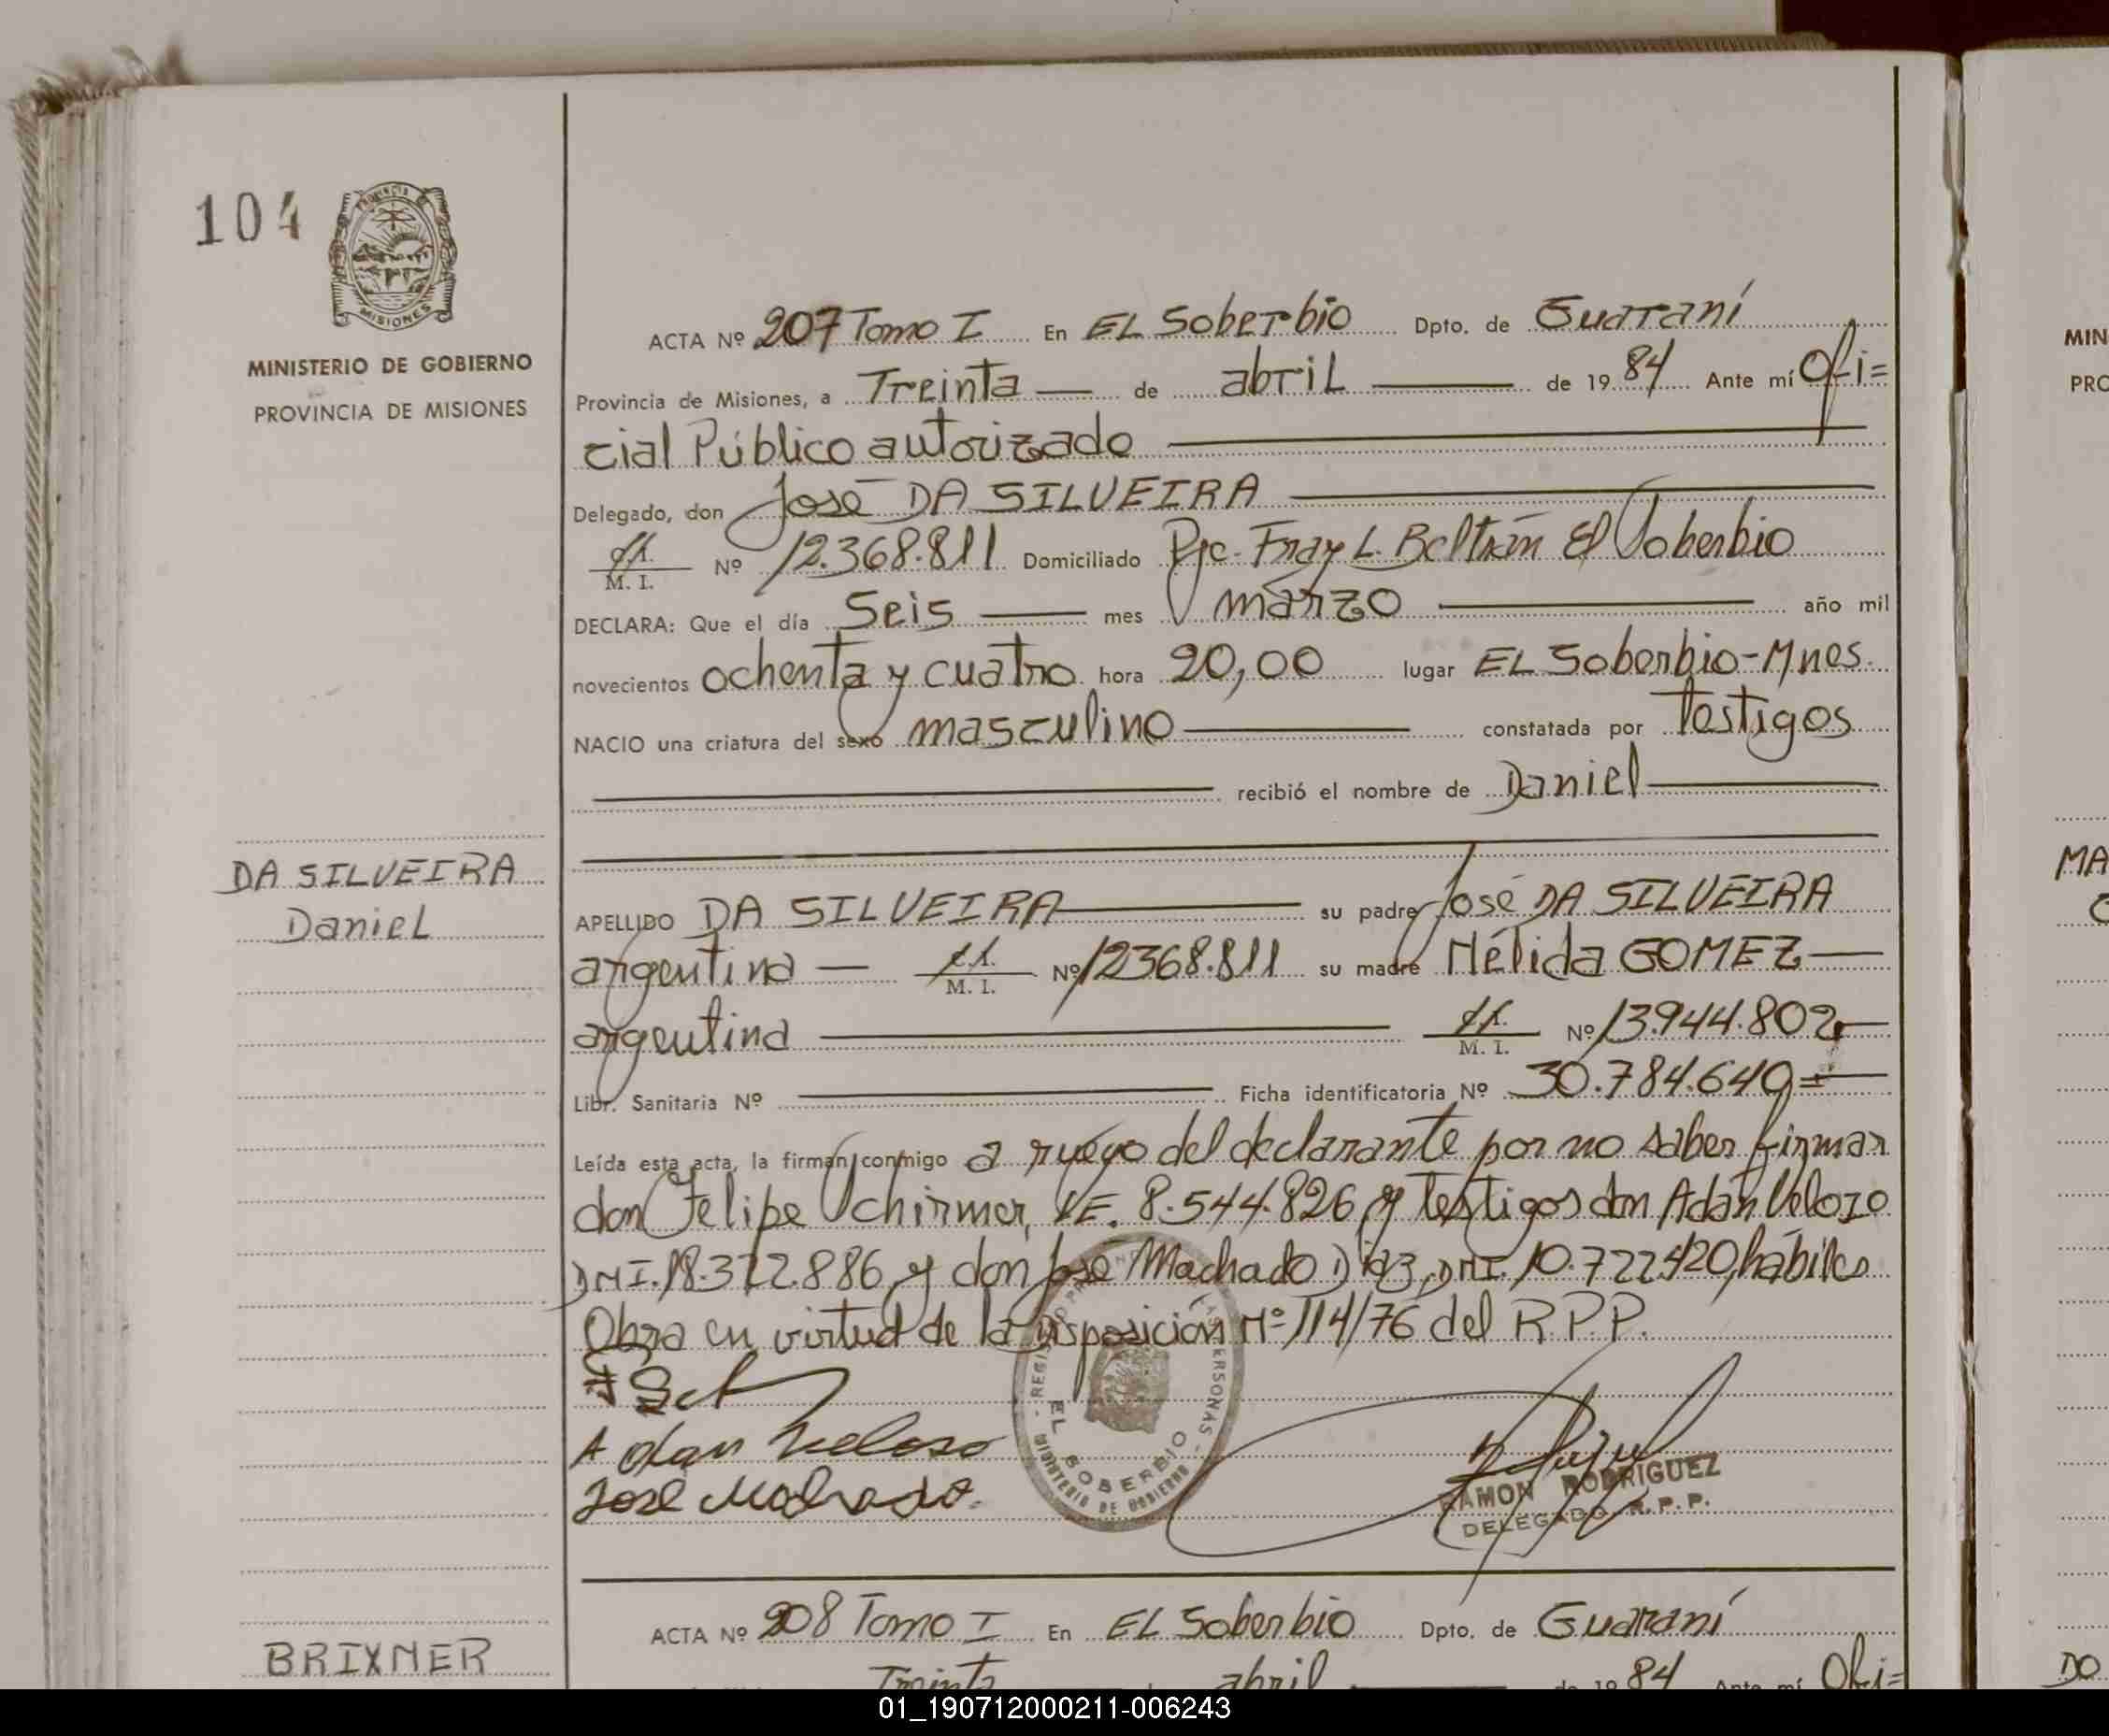 104
PROVINCIA
MISIONES
MINISTERIO DE GOBIERNO
PROVINCIA DE MISIONES
ACTA Nº 207 Tomo I En EL Soberbio Dpto. de Guaraní
Provincia de Misiones, a Treinta — de abril — de 19 84 Ante mí Ofi=
cial Público autorizado
Delegado, don José DA SILVEIRA
M. I. Nº 12.368.811 Domiciliado Pje. Fray L. Beltrán El Soberbio
DECLARA: Que el día Seis — mes marzo — año mil
novecientos ochenta y cuatro hora 20,00 lugar EL Soberbio-Mnes.
NACIO una criatura del sexo masculino — constatada por testigos
recibió el nombre de Daniel
DA SILVEIRA
Daniel
APELLIDO DA SILVEIRA — su padre José DA SILVEIRA
argentina — M. I. Nº 12368.811 su madre Nélida GOMEZ —
argentina — M. I. Nº 13.944.802
Libr. Sanitaria Nº — Ficha identificatoria Nº 30.784.640=
Leída esta acta, la firman conmigo a ruego del declarante por no saber firmar
don Felipe Schirmer, LE. 8.544.826 y testigos don Adán Velozo
DNI. 18.322.886, y don José Machado Diaz, DNI. 10.722.420, hábiles
Obra en virtud de la Disposición Nº 114/76 del R.P.P.
Adan Velozo
José Machado.
EL SOBERBIO
MINISTERIO DE GOBIERNO
RAMON RODRIGUEZ
DELEGADO R.P.P.
ACTA Nº 208 Tomo I En EL Soberbio Dpto. de Guaraní
Treinta abril de 19 84 Ante mí Ofi=
BRIXNER
MIN
PRO
MA
DO
01_190712000211-006243